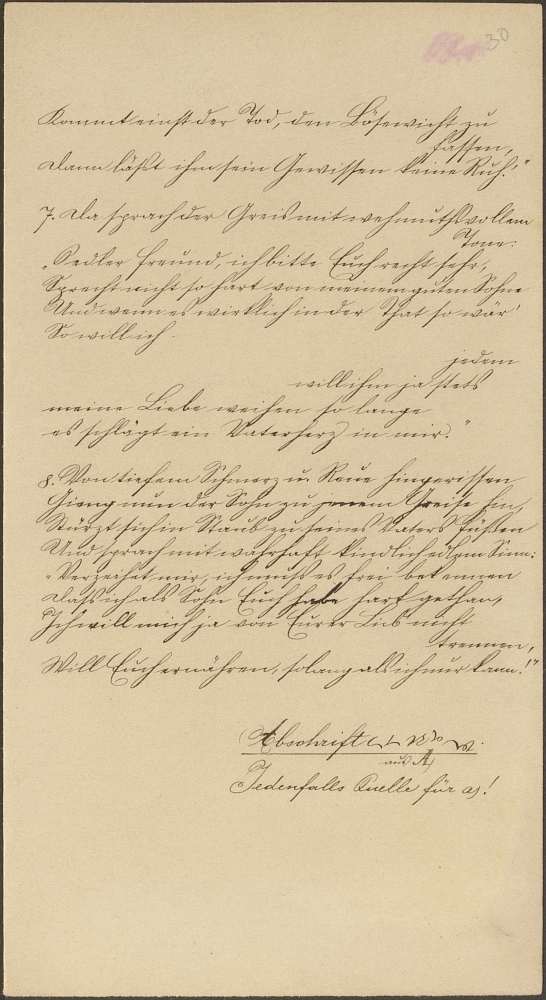 30
Kommt einst der Tod, den Bösewicht zu
fassen,
Dann läßt ihm sein Gewissen keine Ruh!"
7. Da sprach der Greis mit wehmuthsvollem
Tone:
„Edler Freund, ich bitte Euch recht sehr,
Sprecht nicht so hart von meinem guten Sohne
Und wenn es wirklich in der That so wär'
So will ich
jedem
will ihm ja stets
meine Liebe weihen so lange
es schlägt ein Vaterherz in mir."
8. Von tiefem Schmerz u. Reue hingerissen
Gieng nun der Sohn zu jenem Greise hin,
Stürzt sich in Staub zu seines Vaters Füßen
Und sprach mit wahrhaft kindlich edlem Sinn:
„Verzeihet mir, ich muß es frei bekennen
Dass ich als Sohn Euch habe hart gethan,
Ich will mich ja von Eurer Lieb nicht
trennen,
Will Euch ernähren, solang als ich nur kann!"
Abschrift
aus A)
Jedenfalls Quelle für a)!